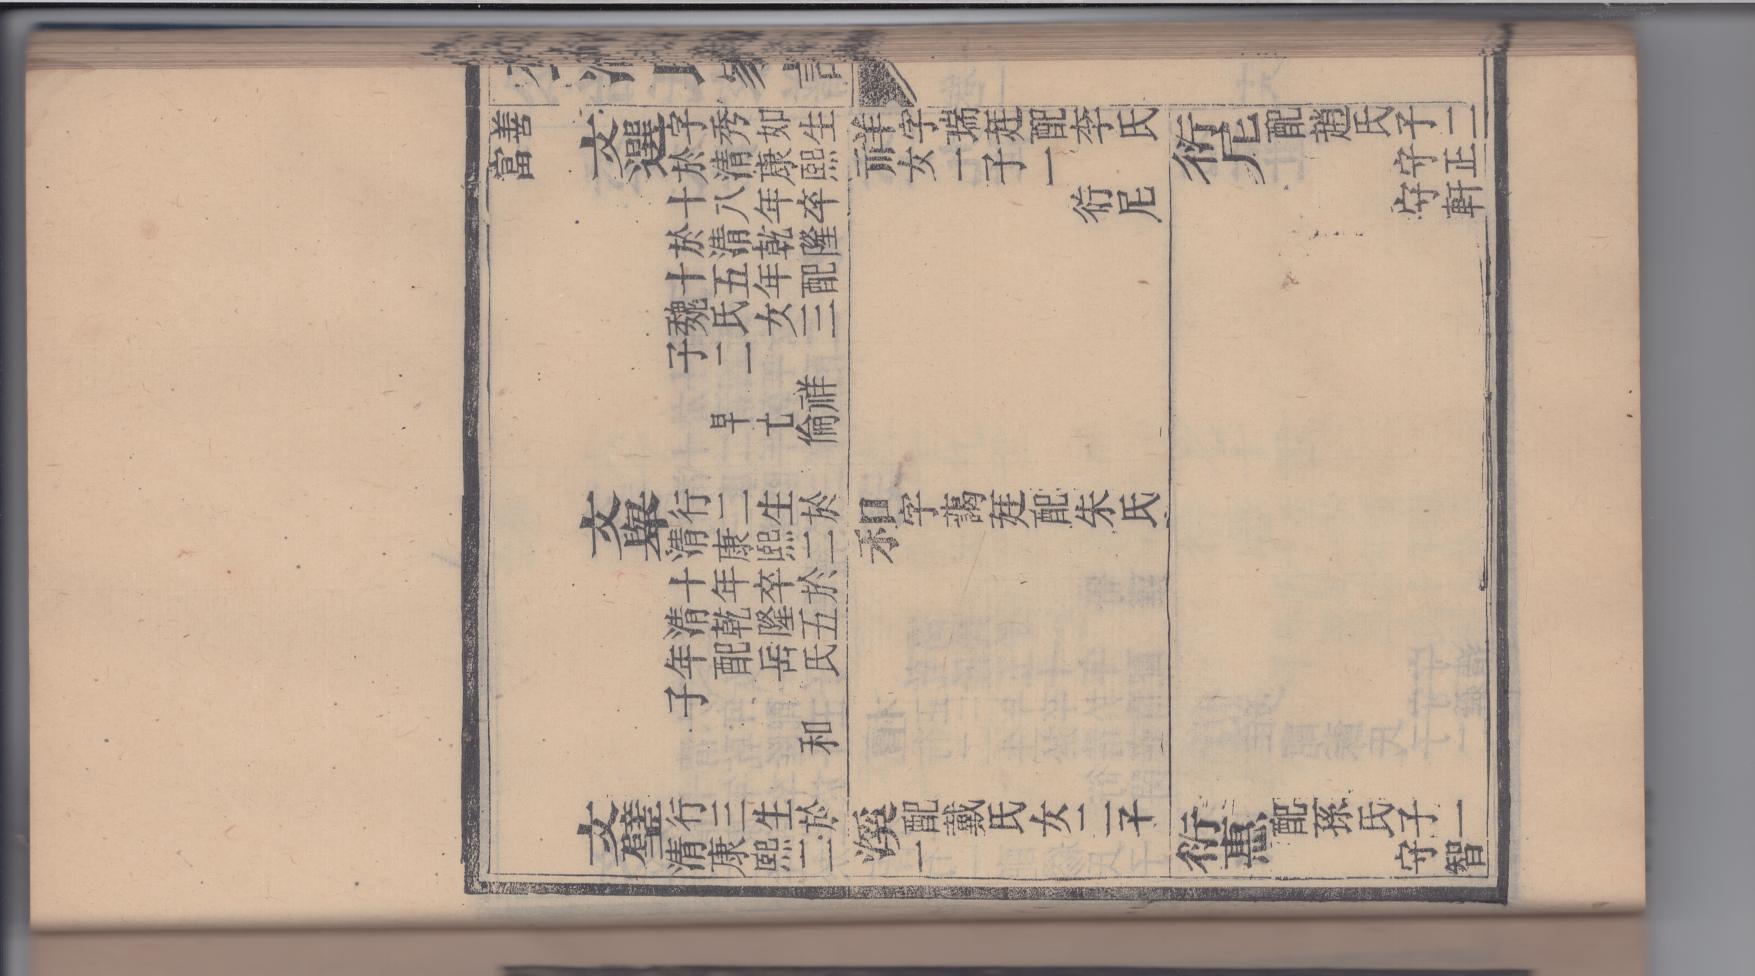 善
富
文選
字秀如生
於清康熙
十八年卒
於清乾隆
十五年配
魏氏女三
子二
祥
早亡倫
文舉
行二生於
清康熙二
十年卒於
清乾隆五
年配岳氏
子
和
文璧
行三生於
清康熙二
祥字瑞廷配李氏
女一子一
衍尼
和字藹廷配朱氏
配戴氏女二子
一
衍尼配趙氏子二
守正
守軒
衍惠配孫氏子一
守智